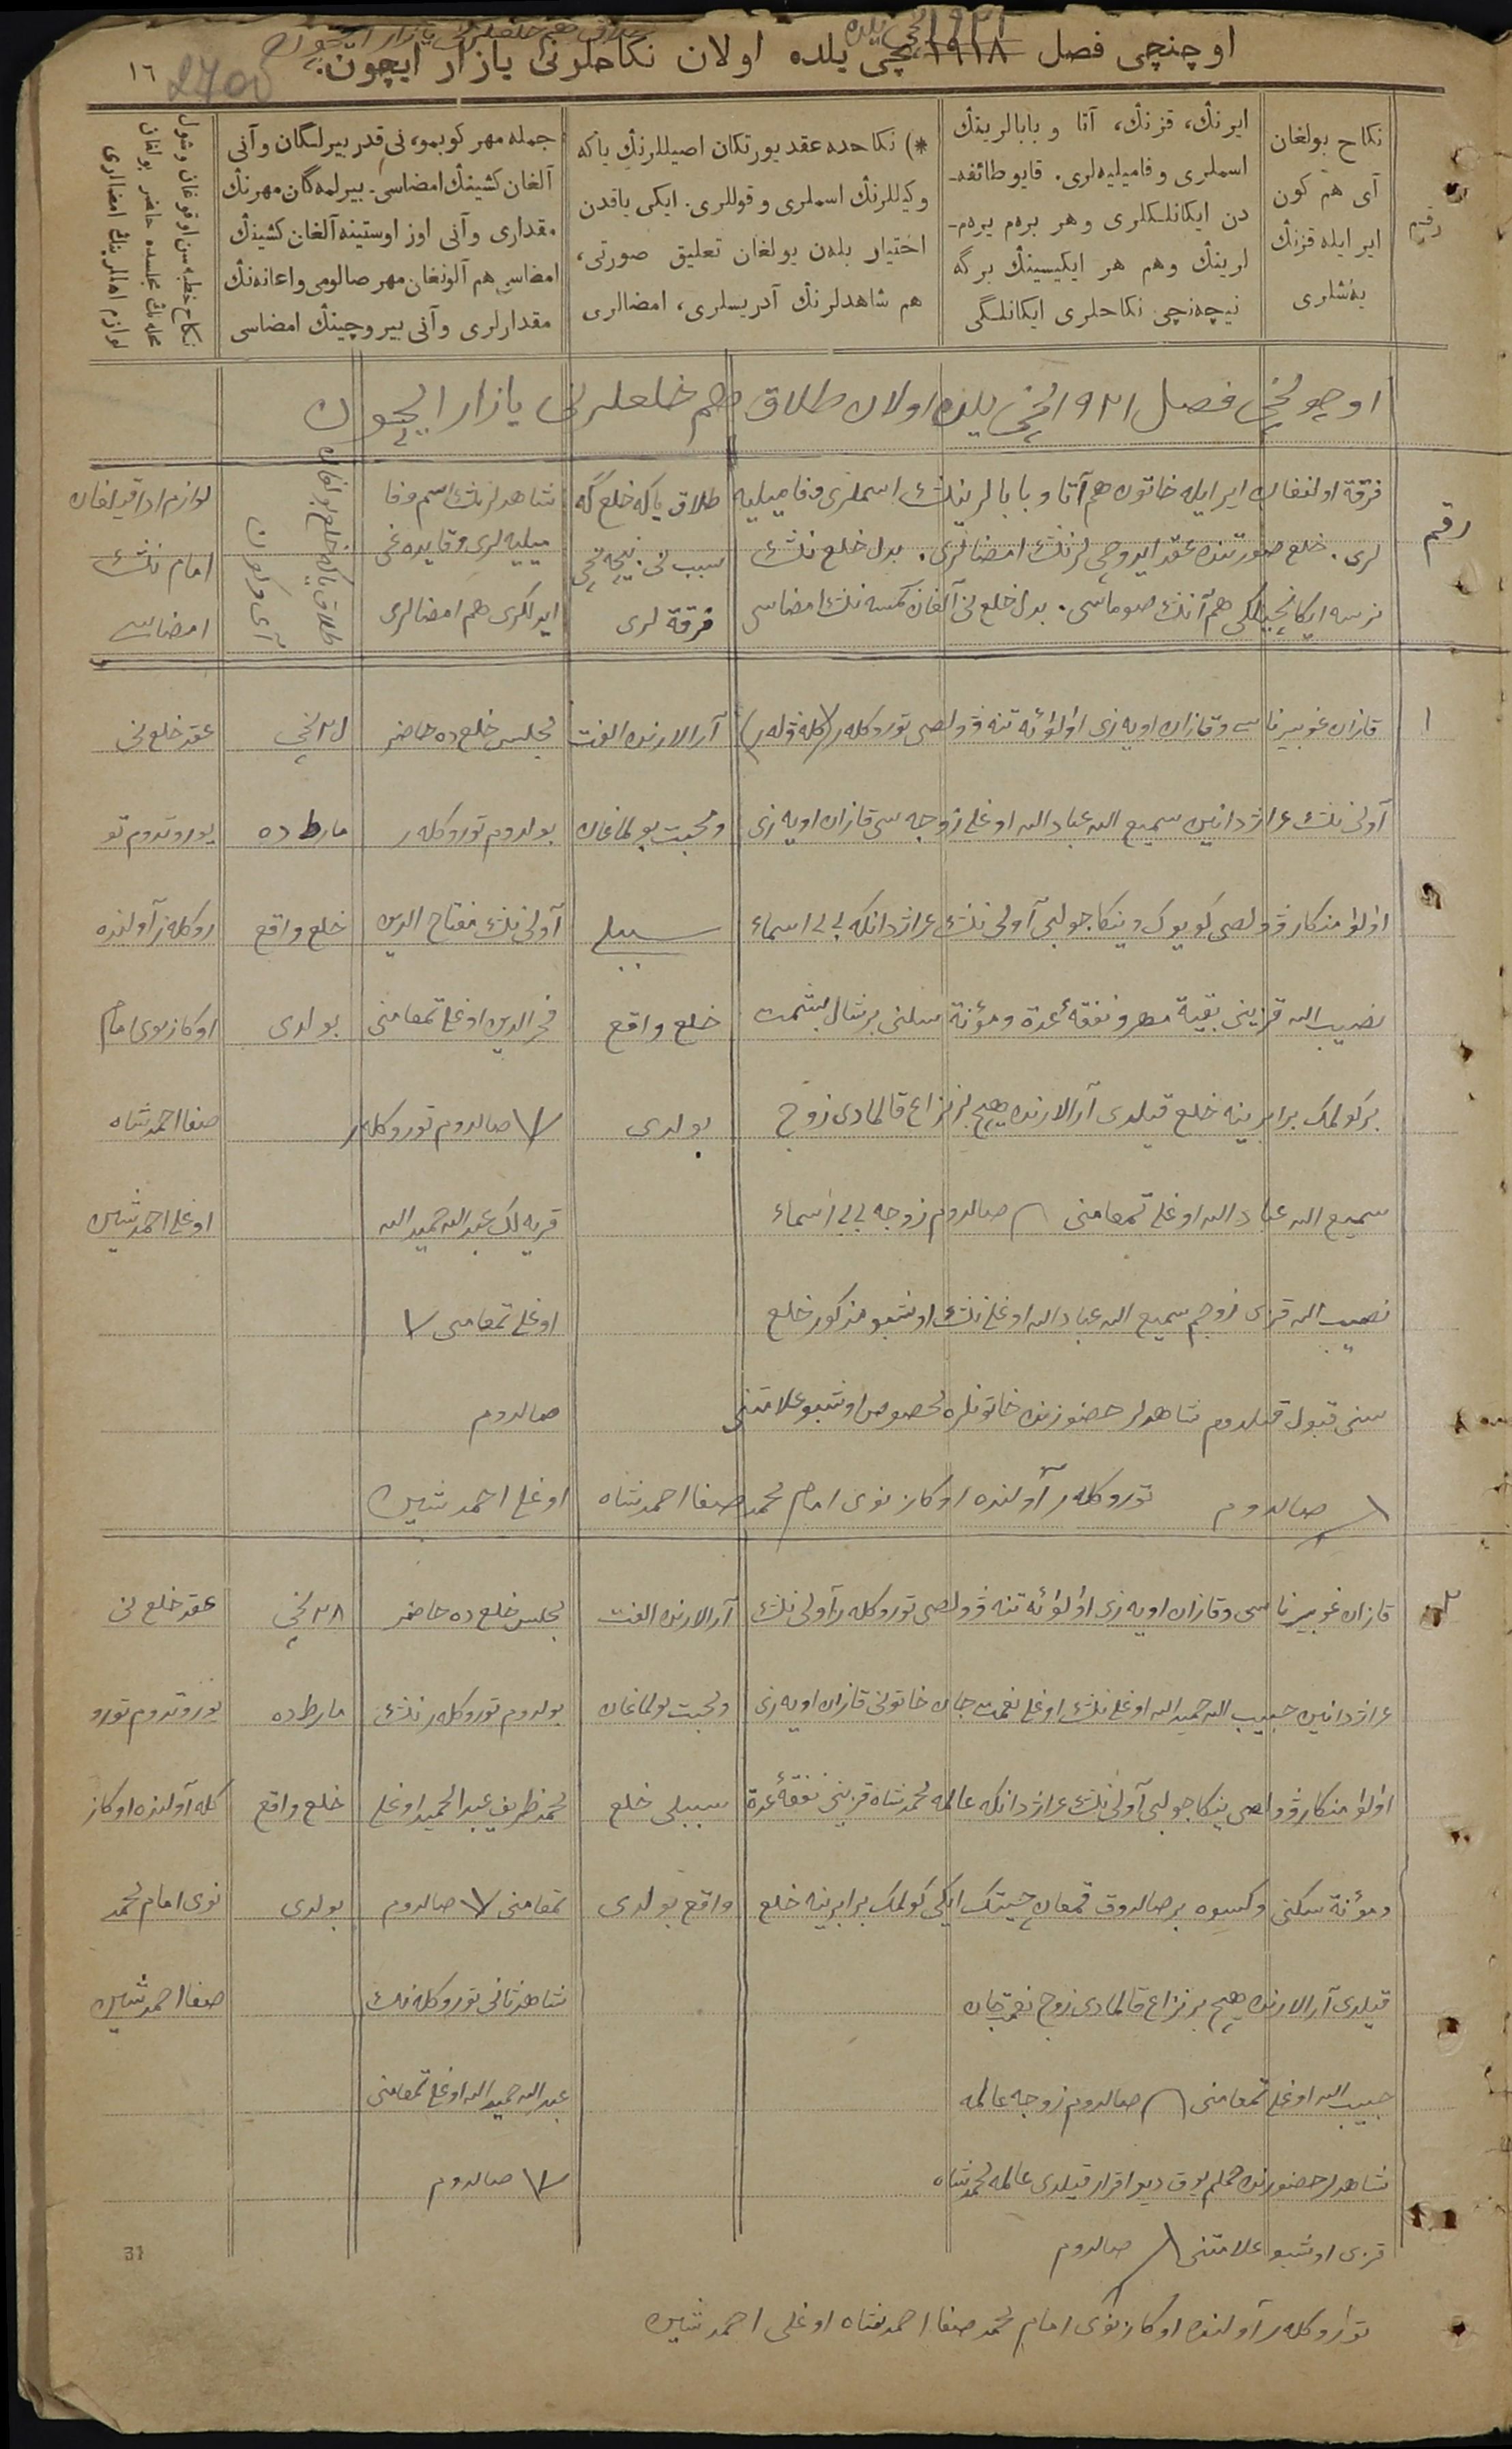 طلاق هم خلعلرنی یازار ایچون
۱۹۲۱ نچی یلده
اوچنچی فصل ۱۹۱۸ نچی یلده اولان نکاحلرنی یازار ایچون.
2700
۱٦
رقم
نکاح بولغان
آی هم کون
ایر ایله قزنڭ
یەشلری
ایرنڭ، قزنڭ، آتا و بابالرینڭ
اسملری و فامیلیەلری. قایو طائفه‌ـ
دن ایکانلکلری و هر برەم یرەم‌ـ
لرینڭ وهم هر ایکیسینڭ برگه
نیچەنچی نکاحلری ایکانلگی
*) نکاحده عقد یورتکان اصیللرنڭ یاکه
وکیللرنڭ اسملری و قوللری. ایکی یاقدن
اختیار بلەن بولغان تعلیق صورتی،
هم شاهدلرنڭ آدریسلری، امضالری
جمله مهر کوبمو، نی قدر بیرلگان وآنی
آلغان کشینڭ امضاسی. بیرلمه‌گان مهرنڭ
مقداری وآنی اوز اوستینه آلغان کشینڭ
امضاسی هم آلونغان مهر صالومی واعانه‌نڭ
مقدارلری وآنی بیروچینڭ امضاسی
نکاح خطبه‌سن اوقوغان وشول
محله‌نڭ مجلسده حاضر بولغان
لوازم اهللرینڭ امضالری
اوچونچی فصل ۱۹۲۱ نچی یلده اولان طلاق هم خلعلرنی یازار ایچون
رقم
فرقة اولنغان ایر ایله خاتون هم آتا و بابالرینڭ اسملری وفامیلیه
لری. خلع صورتنده عقد ایدوچی لرنڭ امضالری. بدل خلع نڭ
نرسه ایکانچیلکی هم آنڭ صوماسی. بدل خلع نی آلغان کمسه نڭ امضاسی
طلاق یاکه خلع گه
سبب نی نیچه نچی
فرقة لری
شاهدلرنڭ اسم وفا
میلیه لری وقایده غی
ایرلکری هم امضالری
طلاق یاکه خلع اولغان
آی و کون
لوازم ادا قیلغان
امام نڭ
امضاسی
۱
قازان غوبیرناسی وقازان اویه‌زی اولوئه تنه ڤولصی توروکلەر (کله‌ڤلەر)
آولی نڭ غراژدانین سمیع الله عبادالله اوغلی زوجه سی قازان اویه‌زی
اولوا منکار ڤولصی کویوک وینکا جولبی آولی نڭ غراژدانکه بی بی اسماء
نصیب الله قزینی بقیة مهر ونفقهٔ عدة ومؤنة سکنی برشال
برکولمک برابرینه خلع قیلدی آرالارنده هیچ بر نزاع قالمادی زوج
سمیع الله عبادالله اوغلی تمغامنی صالدوم زوجه بی بی اسماء
نصیب الله قزی زوجم سمیع الله عبادالله اوغلی نڭ اوشبو مذکور خلع
سنی قبول قیلدوم شاهدلر حضورنده خاتونلره مخصوص اوشبو علامتنی
صالدوم
آرالارنده الفت
ومحبت بولماغان
سببلی
خلع واقع
بولدی
مجلس خلع ده حاضر
بولدوم توروکلەر
آولی نڭ مفتاح الدین
فخرالدین اوغلی تمغامنی
صالدوم توروکلەر
قریه لک عبدالله حمیدالله
اوغلی تمغامنی
صالدوم
۲۱ نچی
مارط ده
خلع واقع
بولدی
عقد خلع نی
یوروتدوم تو
روکلەر آولنده
اوکازنوی امام
صفا احمدشاه
اوغلی احمدشین
توروکلەر آولنده اوکازنوی امام محمد صفا احمدشاه اوغلی احمدشین
۲
قازان غوبیرناسی وقازان اویه‌زی اولوئه تنه ڤولصی توروکلەر آولی نڭ
غراژدانین حبیب الله حمیدالله اوغلی نڭ اوغلی نعمت جان خاتونی قازان اویه‌زی
اولوا منکار ڤولصی ینکا جولبی آولی نڭ غراژدانکه عالمه محمدشاه قزینی نفقهٔ عدة
ومؤنة سکنی وکسوه بر صالدوق قمعان چیتک ایکی کولمک برابرینه خلع
قیلدی آرالارنده هیچ بر نزاع قالمادی زوج نعمت جان
حبیب الله اوغلی تمغامنی صالدوم زوجه عالمه
شاهدلر حضورنده حملم یوق دیو اقرار قیلدی عالمه محمدشاه
قزی اوشبو علامتنی صالدوم
آرالارنده الفت
ومحبت بولماغان
سببلی خلع
واقع بولدی
مجلس خلع ده حاضر
بولدوم توروکلەر نڭ
محمد ظریف عبدالحمید اوغلی
تمغامنی صالدوم
شاهد ثانی توروکلەنڭ
عبدالله حمیدالله اوغلی تمغامنی
صالدوم
۲۸ نچی
مارط ده
خلع واقع
بولدی
عقد خلع نی
یوروتدوم تورو
کلە آولنده اوکاز
نوی امام محمد
صفا احمدشین
توروکلەر آولنده اوکازنوی امام محمد صفا احمدشاه اوغلی احمدشین
31